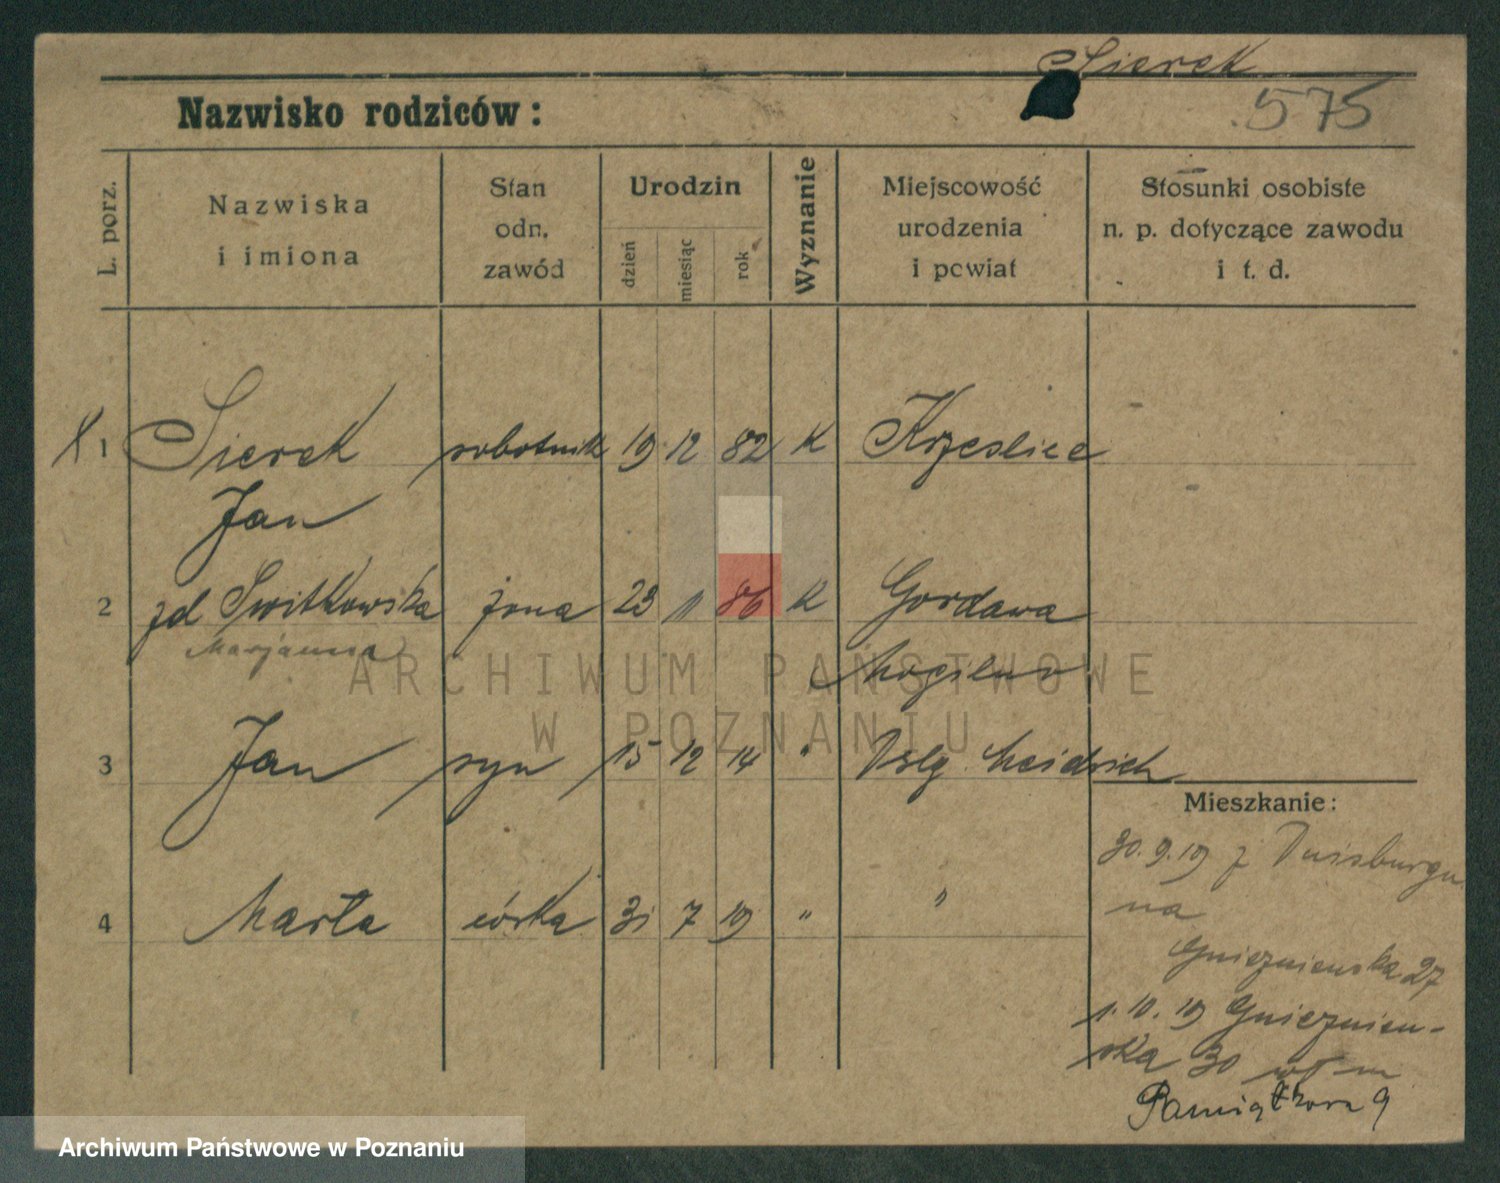 Sierek
575
Nazwisko rodziców:
L. porz.
Nazwiska
i imiona
Stan
odn.
zawód
Urodzin
dzień
miesiąc
rok
Wyznanie
Miejscowość
urodzenia
i powiat
Stosunki osobiste
n. p. dotyczące zawodu
i t. d.
X 1 Sierek robotnik 19 12 82 K Krzeslice
Jan
2 zd Switkowska żona 23 11 86 K Gordawa
Marjanna Mogilno
3 Jan syn 15 12 14 " Dsbg Meidrich
4 Marta córka 31 7 19 " "
Mieszkanie:
30.9.19 z Duisburgu
na
Gnieznienska 27
1.10.19 Gnieznien-
ska 30 wł m
Pamiątkowa 9
ARCHIWUM PAŃSTWOWE
W POZNANIU
Archiwum Państwowe w Poznaniu